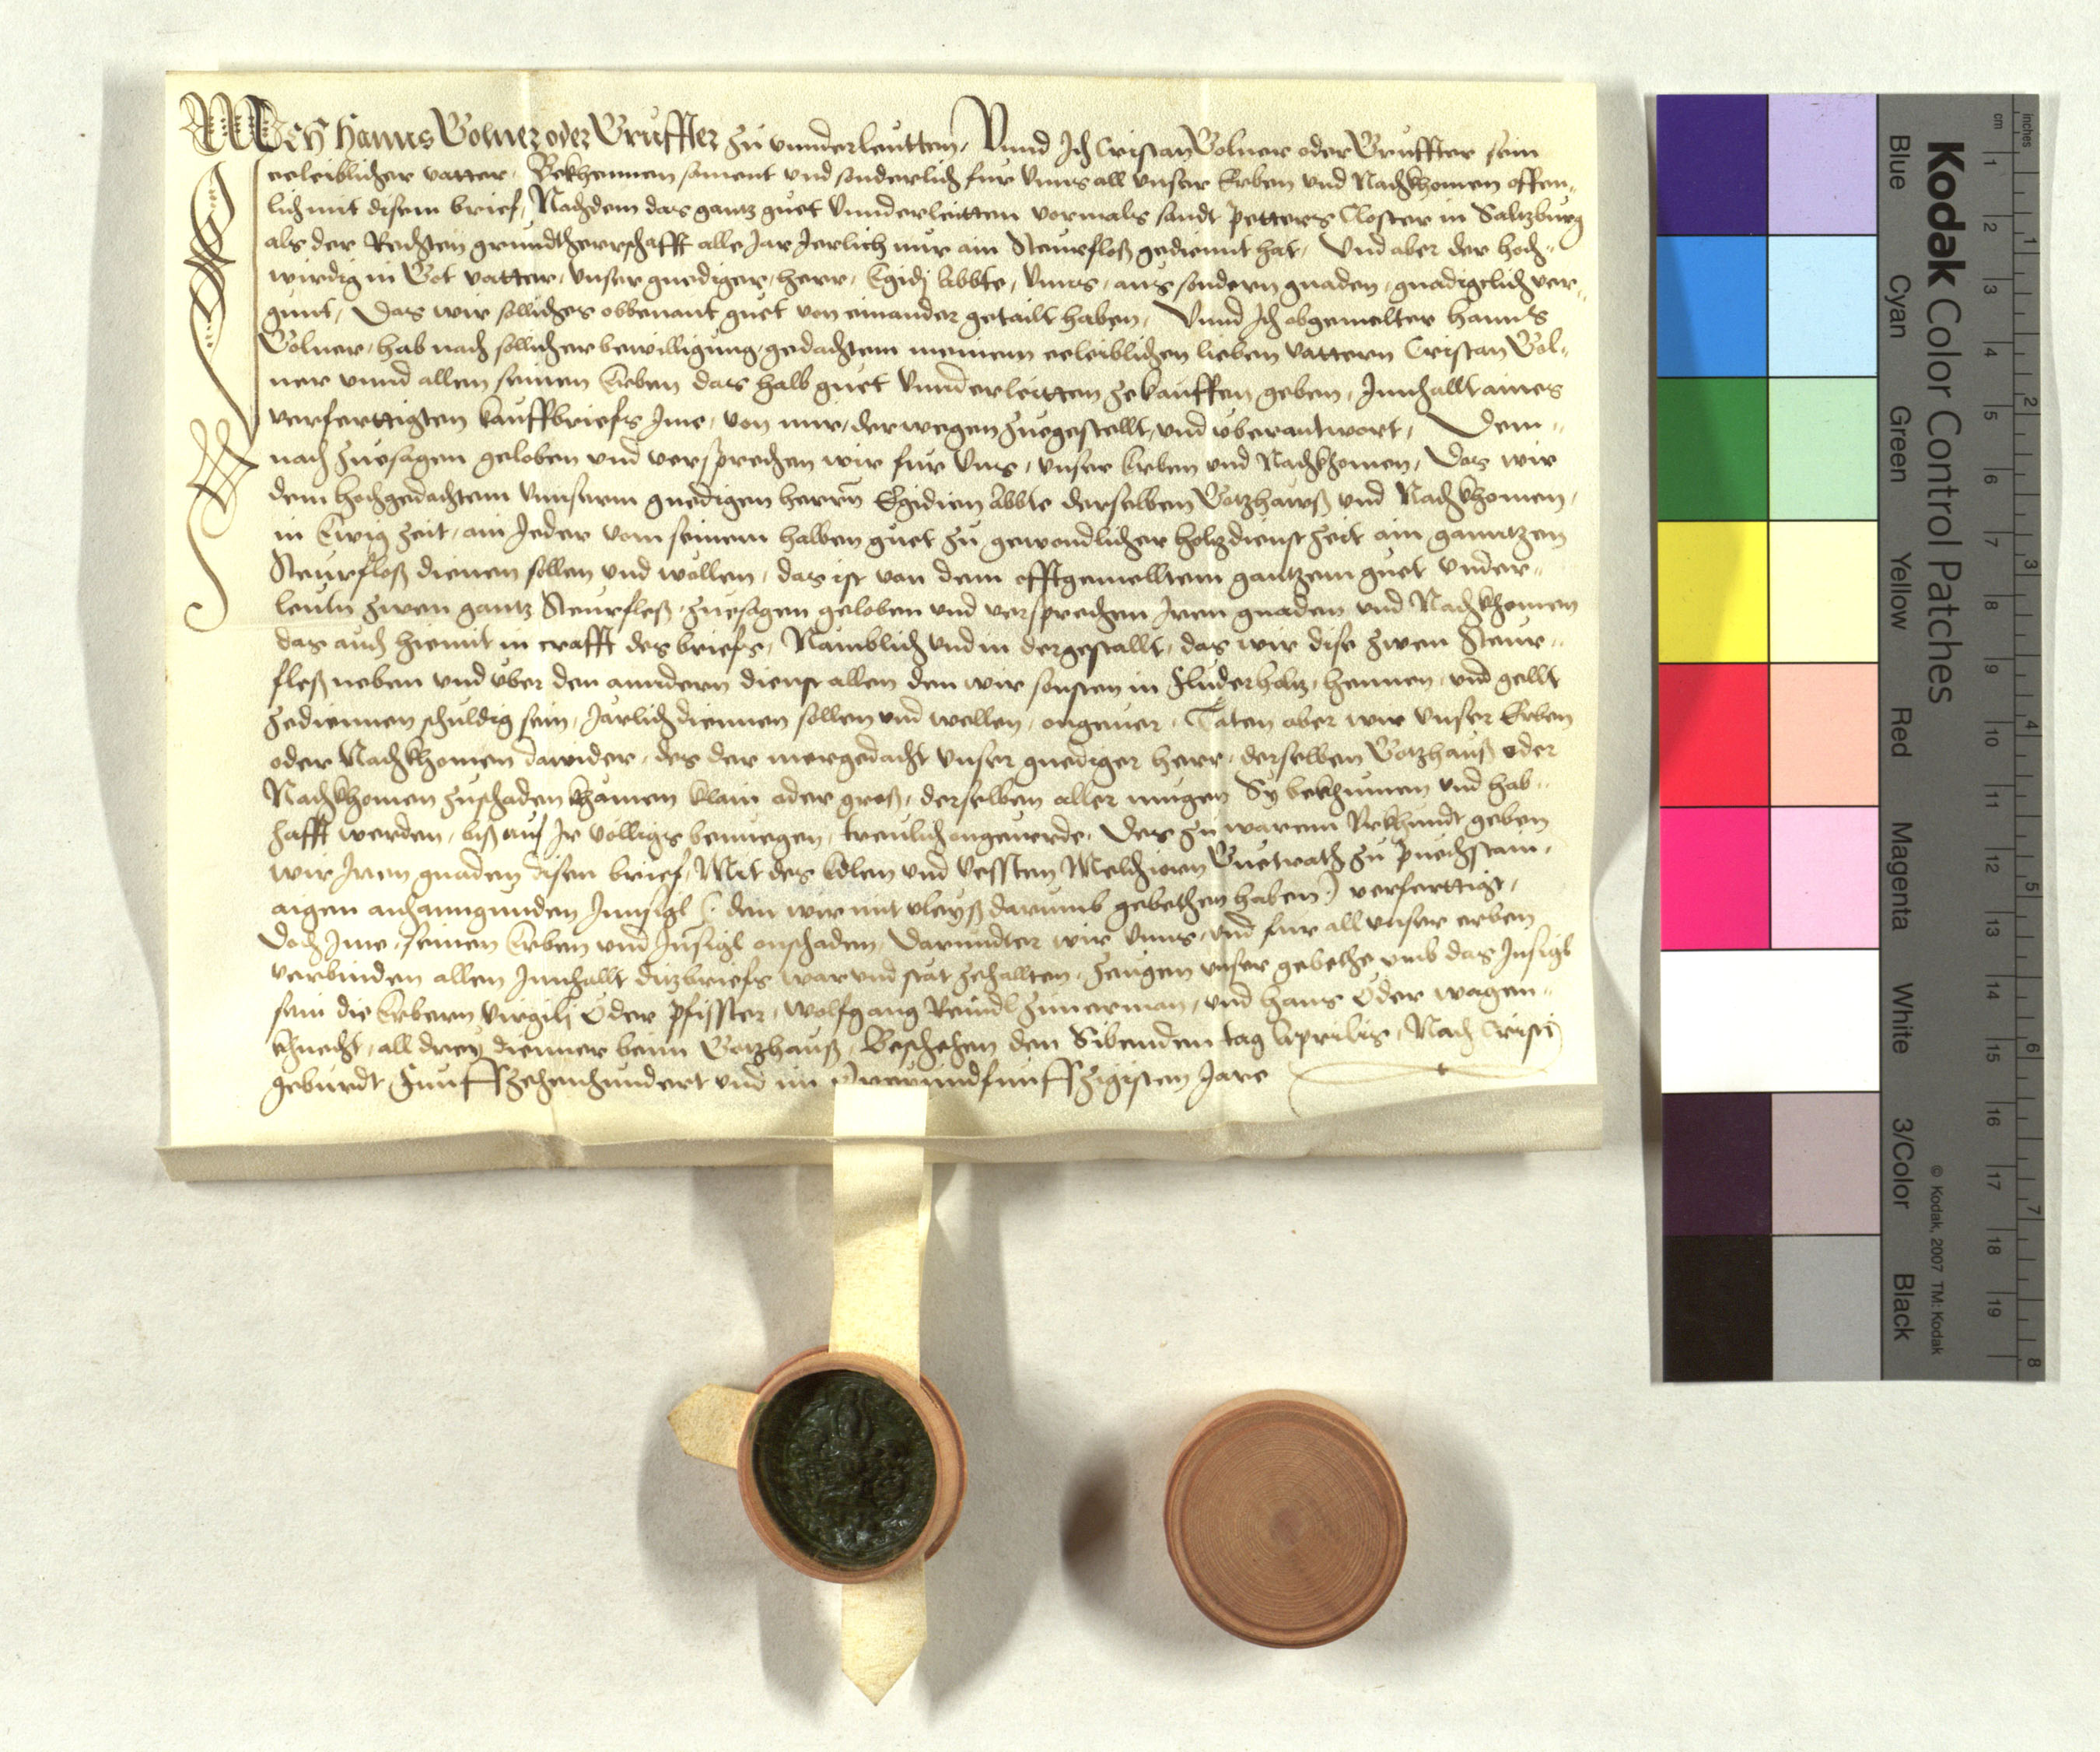 Ich Hanns Golner oder Gruffter zu Vnnderleutten, Vnnd Ich Cristan Golner oder Gruffter sein
eeleiblicher vatter, Bekhennen sament vnd sonderlich fur Vnns all vnser Erben vnd Nachkhomen offen„
lich mit disem brief, Nachdem das gantz guet Vnnderleitten vormals sandt Petters Closter in Saltzburg
als der Rechten grundtherrschafft alle Jar Jerlich nur ain Steurfloß gediennt hat, Vnd aber der hoch„
wirdig in Got vatter, vnser gnediger, herr, Egidj Abbte, Vnns, aus sondern gnaden, gnadigclich ver„
gunt, Das wir solliches obbenant guet von einander getailt haben, Vnnd Ich obgemelter Hanns
Golner, hab nach sollicher bewilligung, gedachtem meinem eeleiblichen lieben vattern Cristan Gol„
ner vnnd allen seinen Erben das halb guet Vnnderleitten zekauffen geben, Innhallt aines
verferttigten kauffbriefs Ime, von mir, derwegen zuegestellt, vnd vberantwort, Dem„
nach zuesagen geloben vnd versprechen wir fur Vnns, vnser Erben vnd Nachkhomen, Das wir
dem hochgedachtem Vnnserm gnedigen herrn Egidien Abbte derselben Gotzhawß vnd Nachkhomen,
in Ewig zeit, ain Jeder vom seinem halben guet zu gewondlicher holtzdienst zeit ain ganntzen
Steurfloß dienen sollen vnd wöllen, das ist von dem offtgemelltem gantzem guet Vnder„
leutn zwen gantz Steurfleß, zuesagen geloben vnd versprechen Iren gnaden vnd Nachkhomen
das auch hiemit in crafft des briefs, Namblich vnd in der gestallt, das wir dise zwen Steur„
fleß neben vnd vber den anndern dienst allen den wir sonsten in Fluderholtz, hennen, vnd gellt
zediennen schuldig sein, Jarlich diennen sollen vnd wellen, ongeuer, Täten aber wir Vnser Erben
oder Nachkhomen dawider, des der mergedacht Vnser gnediger herr, derselben Gotzhauß oder
Nachkhomen zuschaden khämen klain oder groß, derselben aller mugen Sy bekhumen vnd hab„
hafft werden, biß auf Ir völligs benuegen, treulich ongeuerde, Des zu warem Vrkhundt geben
wir Iren gnaden disen brief, Mit des Edlen vnd Vessten Melchiorn Guetrath zu Puechstain,
aigen anhanngunden Innsigl (: den wir mit vleyß darumb gebethen haben :) verferttigt,
Doch Ime, seinen Erben vnd Insigl onschaden, Darundter wir Vnns, vnd fur all vnser erben
verbinden allen Innhallt ditzbriefs war vnd stat zehallten, Zeugen vnser gebethe vmb das Insigl
sein die Erbern Virgilj Öder Pfisster, Wolfgang Reindl Zimerman, vnd Hans Öder wagen„
khnecht, all drey dienner benn Gotzhauß, Beschehen den Sibenden tag Aprilis, Nach Cristi
geburdt Funffzehenhundert vnd im Drewundfunffzigisten Jare
Kodak Color Control Patches
Blue Cyan Green Yellow Red Magenta White 3/Color Black
© Kodak, 2007 TM: Kodak
cm 1 2 3 4 5 6 7 8 9 10 11 12 13 14 15 16 17 18 19
inches 1 2 3 4 5 6 7 8